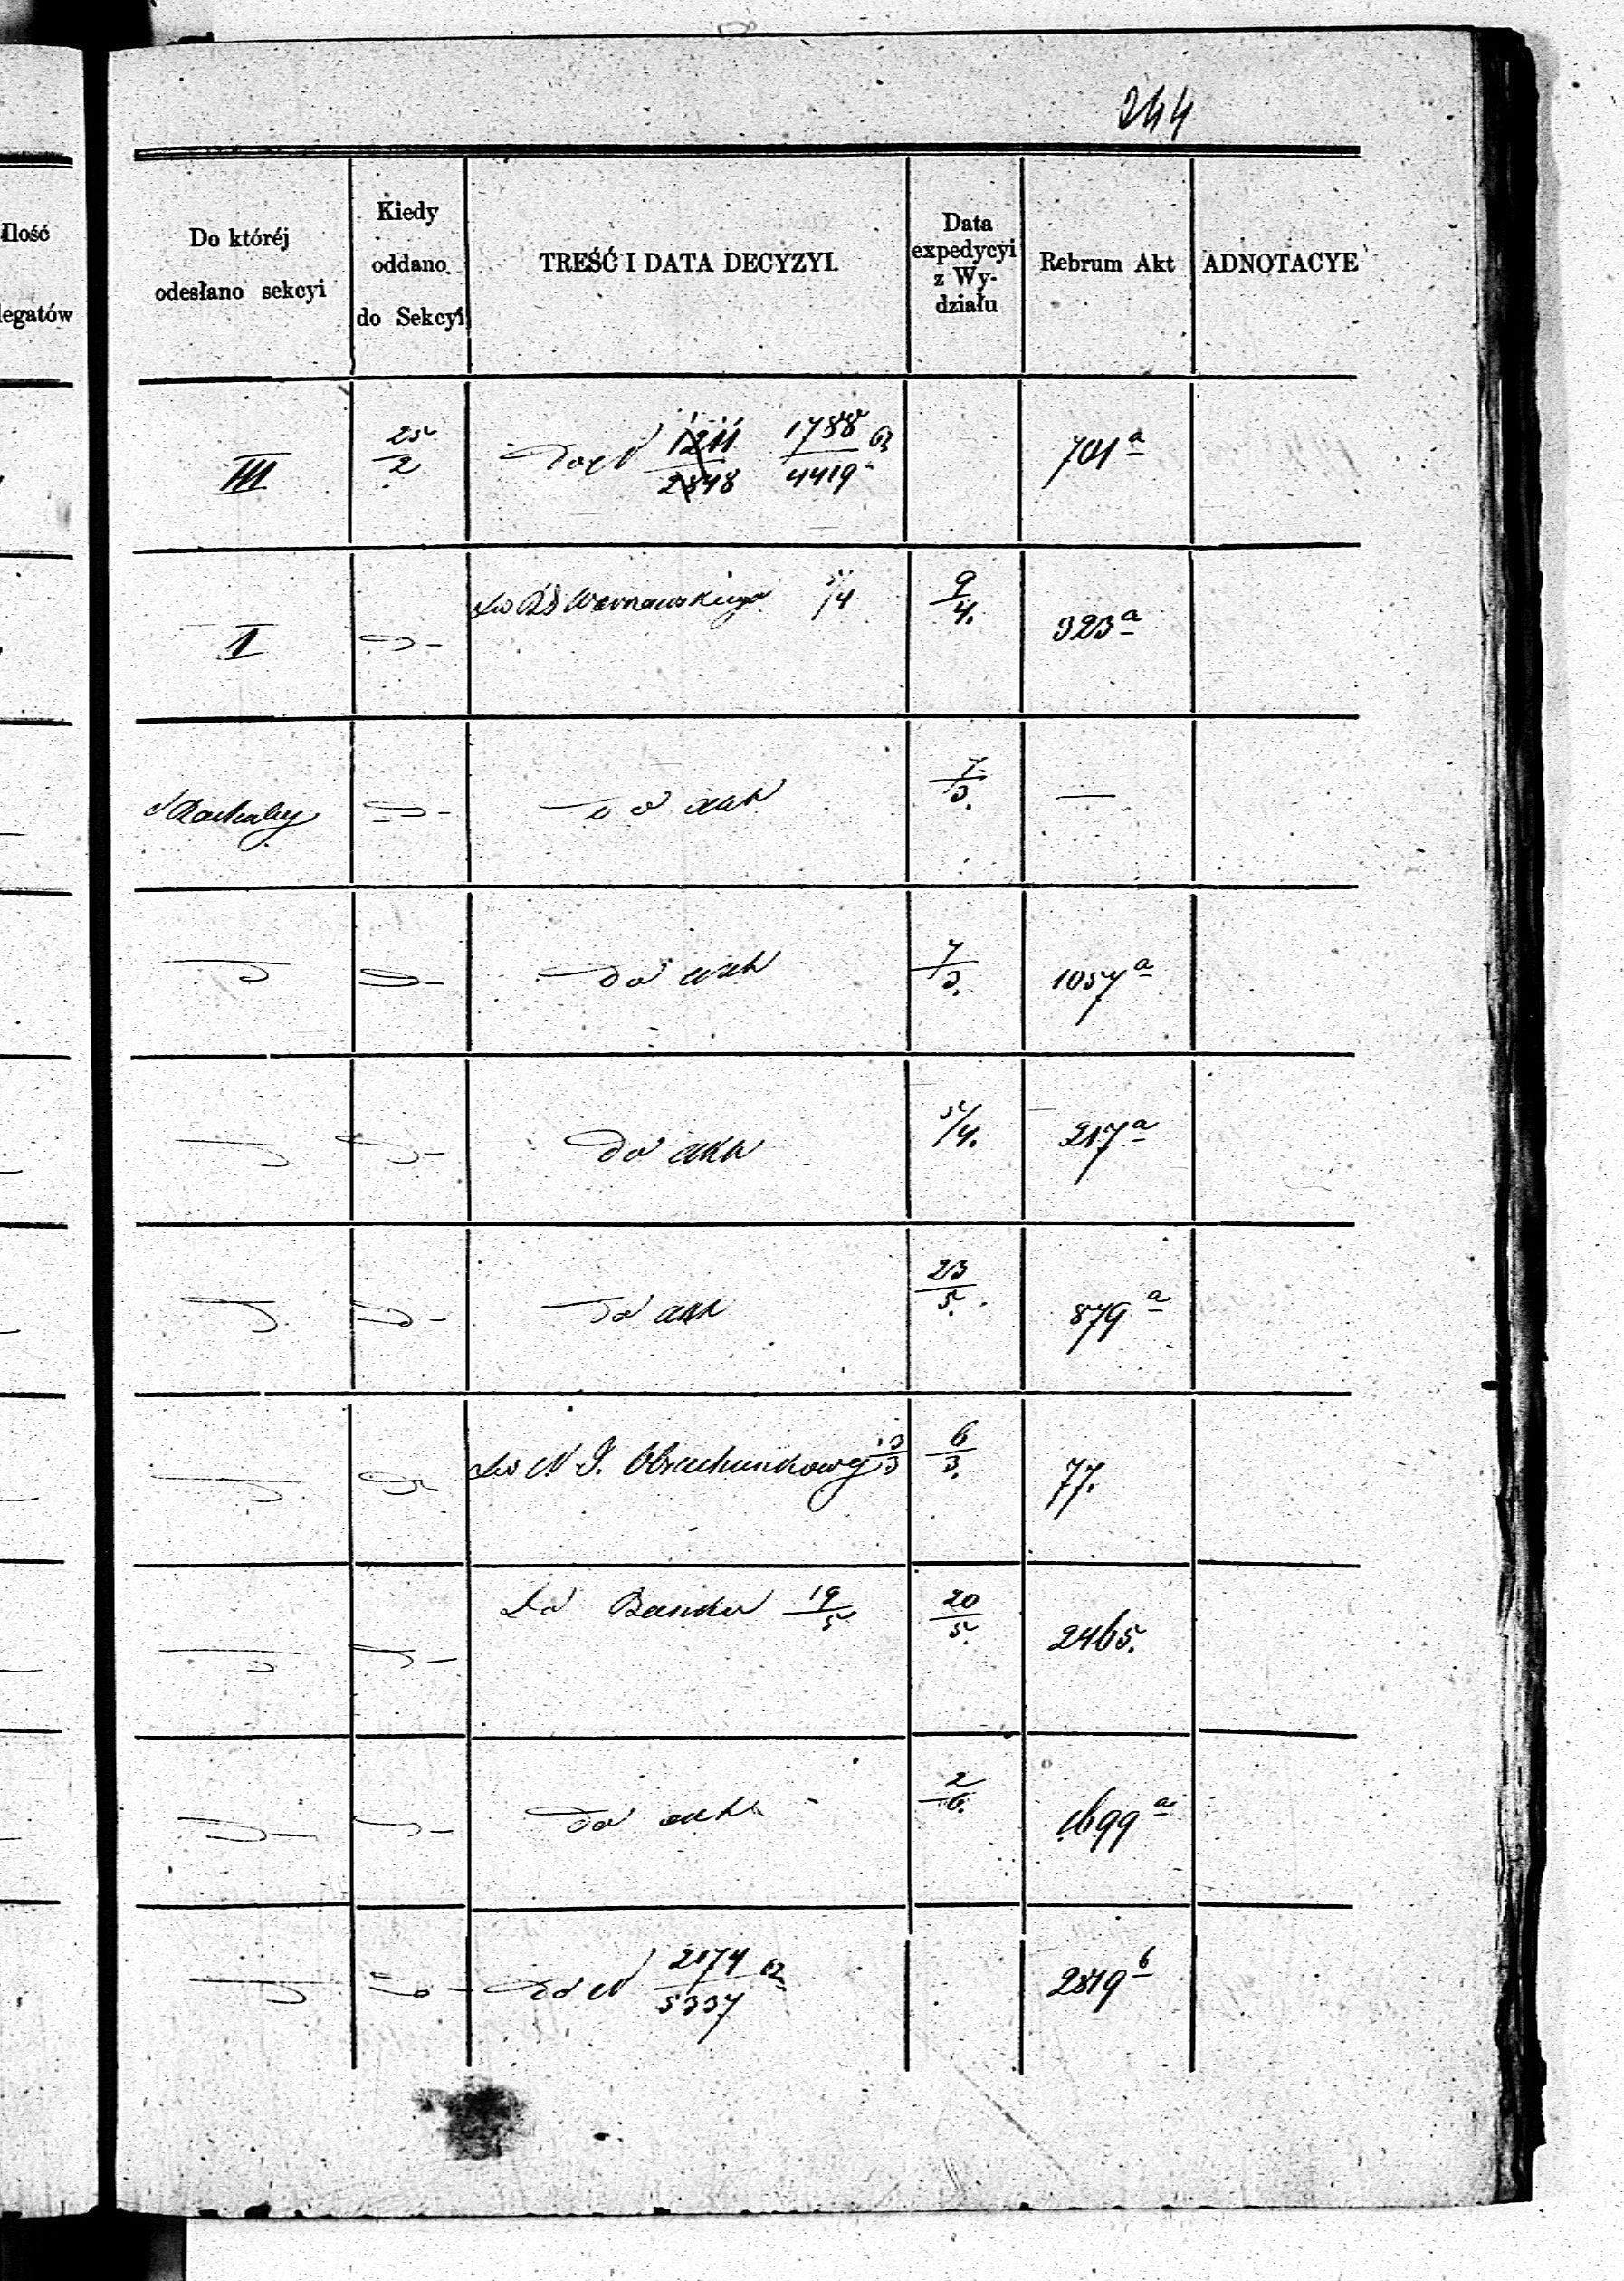 244
Ilość
legatów
Do któréj
odesłano sekcyi
Kiedy
oddano
do Sekcyi
TREŚĆ I DATA DECYZYI.
Data
expedycyi
z Wy-
działu
Rebrum Akt
ADNOTACYE
III 25/2 Do N 1211/2848 1788/4419 62 701 a
I 5/4 9/4. 323 a
do akt 7/3. —
do akt 7/3. 1057 a
do akt 5/4. 217 a
do akt 23/5. 879 a
do Obrachunkowej 3/3 6/3. 77.
do Banku 19/5 20/5. 2465.
do akt 2/6. 1699 a
do N 2174/5337 62 2819 b